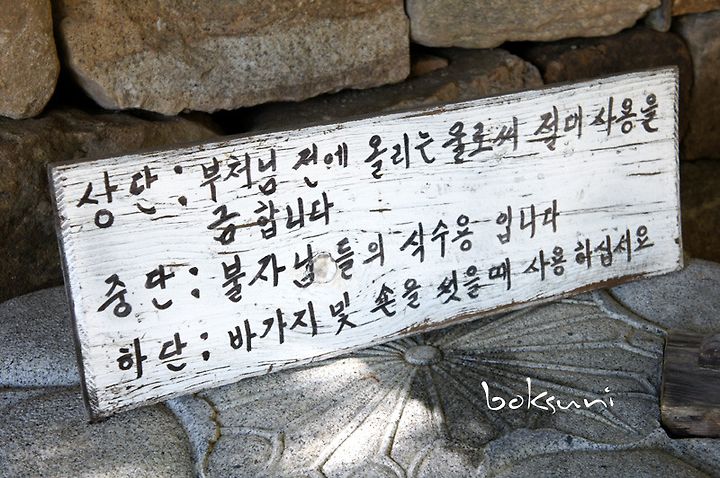 상단: 부처님 전에 올리는 물로써 절대 사용을
금합니다
중단: 불자님 들의 식수용 입니다
하단: 바가지 및 손을 씻을때 사용 하십세요
boksuni